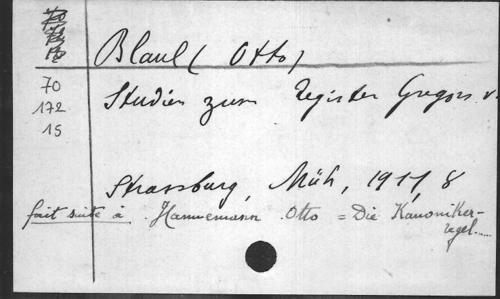 70
172
15
Blaul (Otto)
Studien zum Register Gregors v.
Strassburg, Müh, 1911, 8
fait suite à . Hannemann . Otto = Die Kanoniker-
regel.....